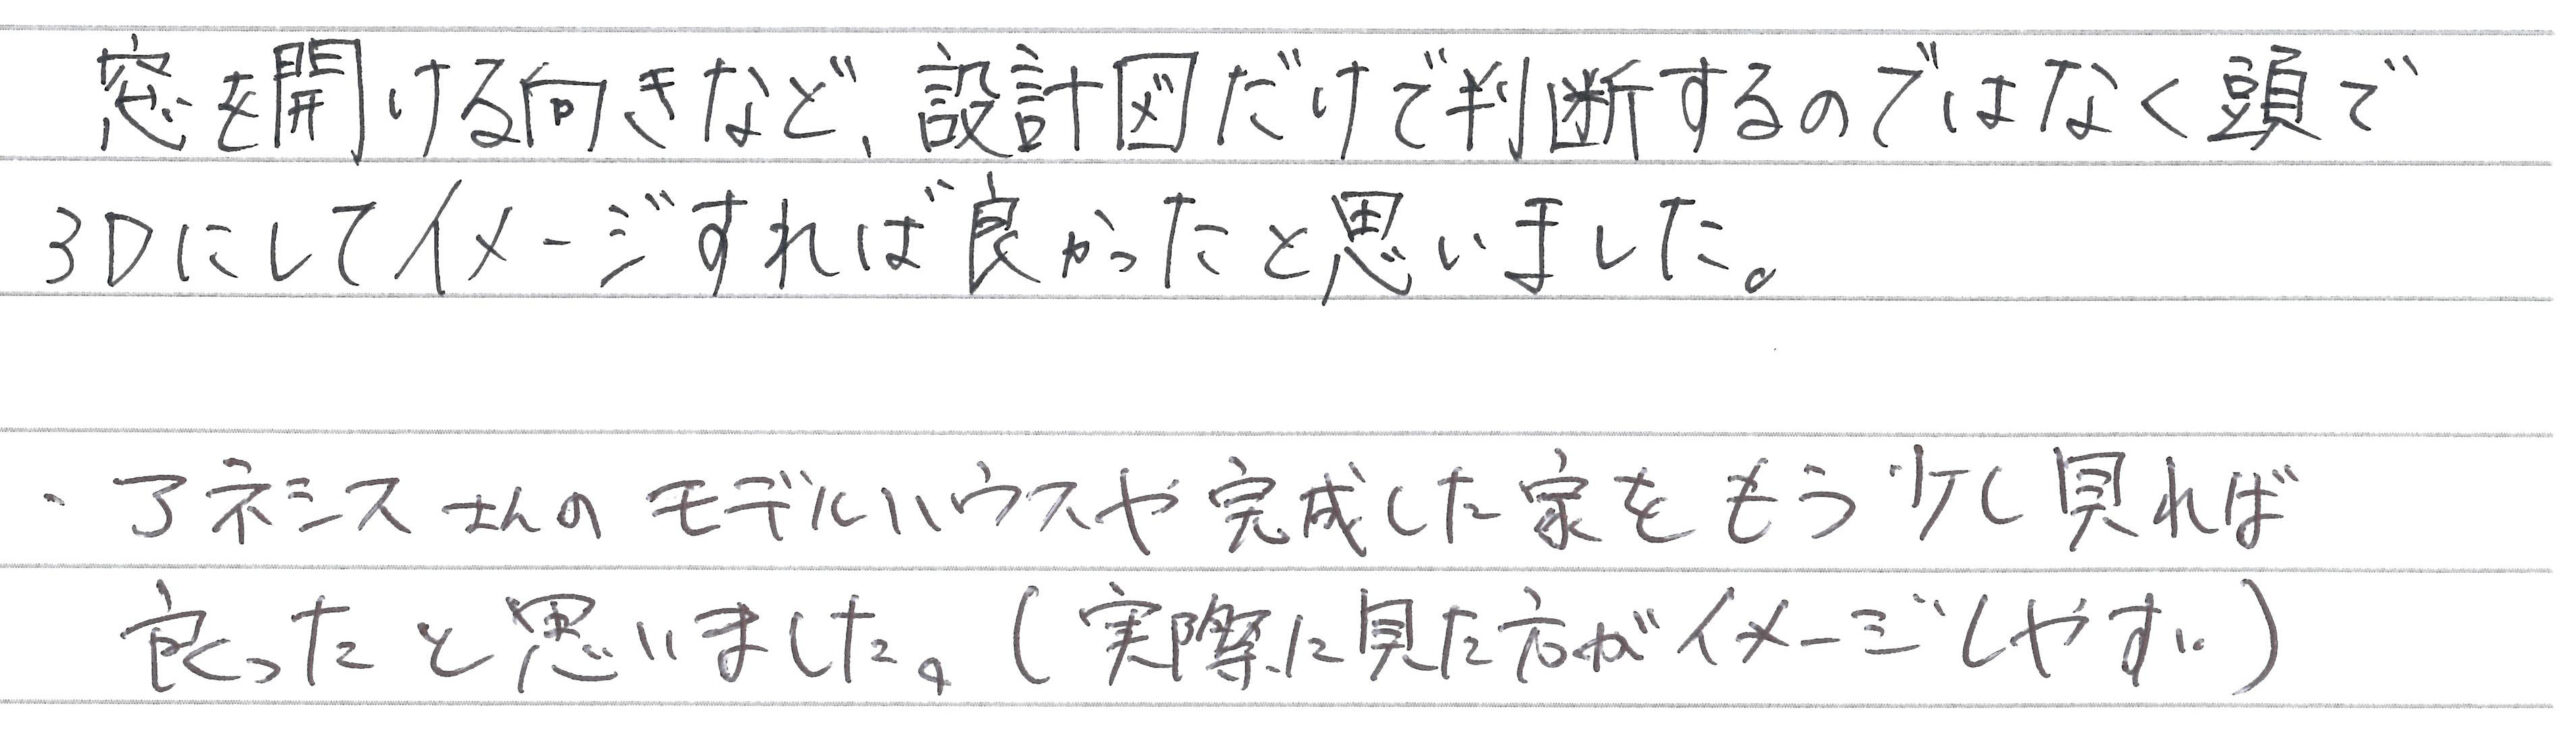 窓を開ける向きなど、設計図だけで判断するのではなく頭で
3Dにしてイメージすれば良かったと思いました。
・アネシスさんのモデルハウスや完成した家をもう少し見れば
良かったと思いました。(実際に見た方がイメージしやすい)